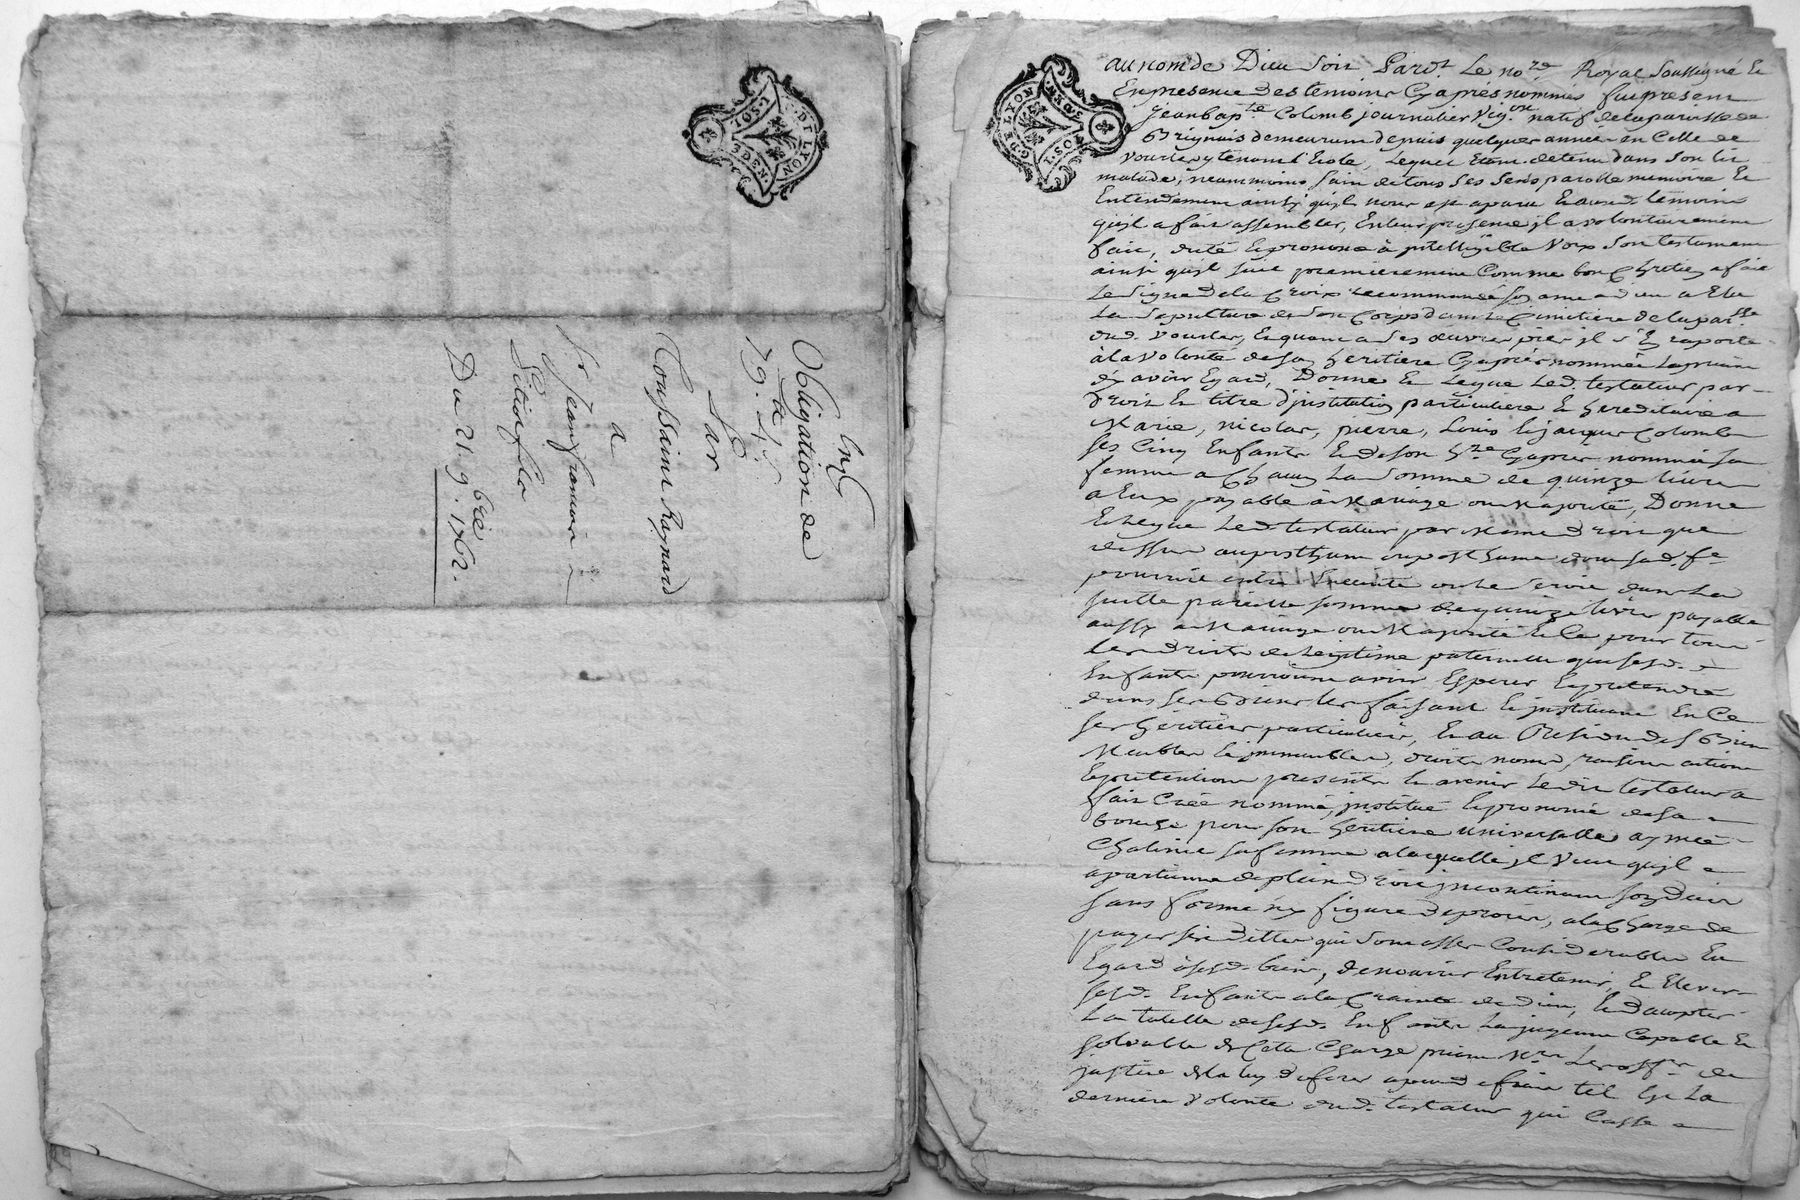 G. DE LYON
1 SOL
Enq
Obligation de
79.tt 4.s
Par
Toussaint Raynard
a
Sr Jean francois
Du 21. 9bre. 1762.
G. DE LYON
au nom de Dieu soit Pard.t Le no.re Royal soussigné Et
En presence des temoins Cyapres nommés fut present
jean bap.te Colomb journalier Vig.on natif de la paroisse de
Brignais demeurant depuis quelques années en Celle de
vourles y tenant l'Ecole, Lequel Etant detenu dans son lit
malade, neanmoins sain de tous ses sens parolle memoire Et
Entendement ainsy qu'jl nous est aparu Et aux d. temoins
qu'jl a fait assembler, En leur presence jl a volontairement
fait, dicté Et prononcé à jntelligible Voix Son testament
ainsi qu'jl suit premierement Comme bon Chretien a fait
Le signe de la Croix recommandé son ame a dieu a Elu
La Sepulture de Son Corps dans Le Cimetiere de la par.sse
dud. Vourles, Et quant a Ses œuvres pies jl s'En raporte
à la Volonté de son heritiere Cyaprès nommée La priant
d'y avoir Egard, Donne Et Legue Led. testateur par
droit Et titre d'jnstitution particuliere Et hereditaire a
Marie, nicolas, pierre, Louis Et jacques Colomb
ses Cinq Enfants Et de son h.re Cyapres nommée sa
femme a Chacun La Somme de quinze livres
a Eux payable à Mariage ou Majorité, Donne
Et Legue Led. testateur par Meme droit que
dessus au posthume ou posthumes dont sad. fe
pourroit estre Enceinte ou Le Seroit dans La
suitte pareille somme de quinze livres payable
aussy a Mariage ou Majorité Et Ce pour tous
Les droits de Legitime paternelle que sesd.
Enfants pourroient avoir Esperer Et pretendre
dans ses Biens Les faisant Et jnstituant En Ce
ses heritiers particuliers, Et au Residu des Biens
Meubles Et jmmeubles, droits noms, raisons actions
Et pretentions presents Et avenir Led.it testateur a
fait Créé nommé, jnstitué Et prononcé de sa
bouche pour son heritiere universelle aymée
sa femme a laquelle jl Veut qu'jl
apartienne de plein droit jncontinent son deces
sans forme ny figure de proces, a la Charge de
payer ses dettes qui Sont assés Considerables Eu
Egard à sesd. biens, de nourrir Entretenir, Et Elever
sesd. Enfants a la Crainte de dieu, Et d'accepter
La tutelle de sesd. Enfants La jugeant Capable Et
solvable de Cete Charge priant M.rs Les off.rs de
justice de la luy deferer apres deces tel Est La
derniere Volonté dud. testateur qui Casse